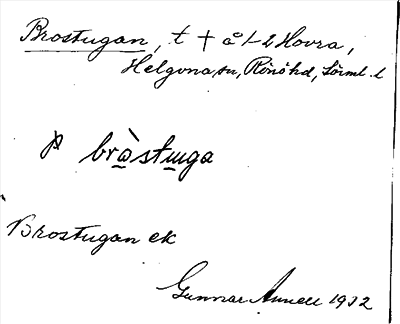 Brostugan, t † å 1-2 Hovra,
Helgona sn, Rönö hd, Sörml. l
P bròstuga
Brostugan ek
Gunnar Annell 1932